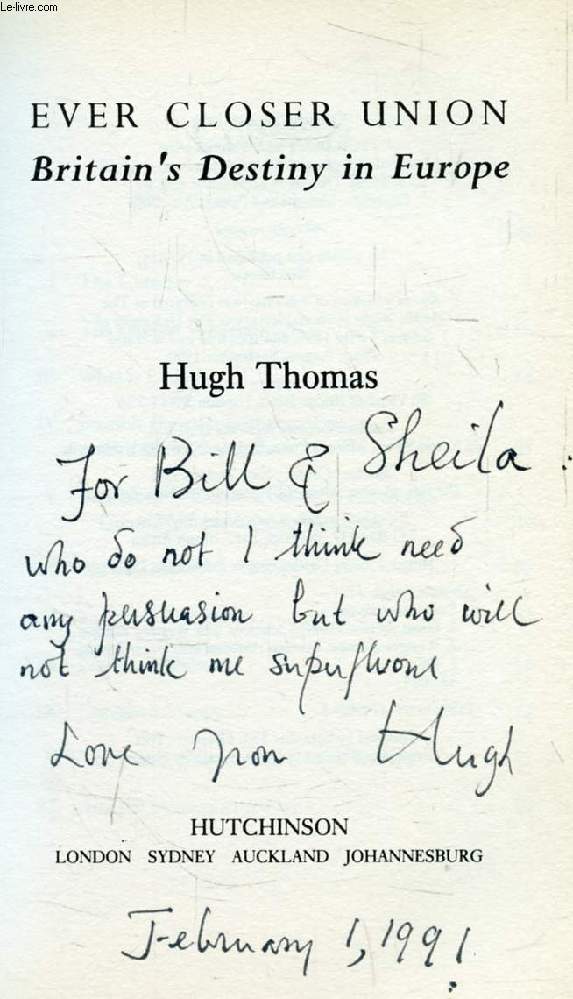 Le-livre.com
EVER CLOSER UNION
Britain's Destiny in Europe
Hugh Thomas
For Bill & Sheila
who do not I think need
any persuasion but who will
not think me superfluous
Love from Hugh
HUTCHINSON
LONDON SYDNEY AUCKLAND JOHANNESBURG
February 1, 1991